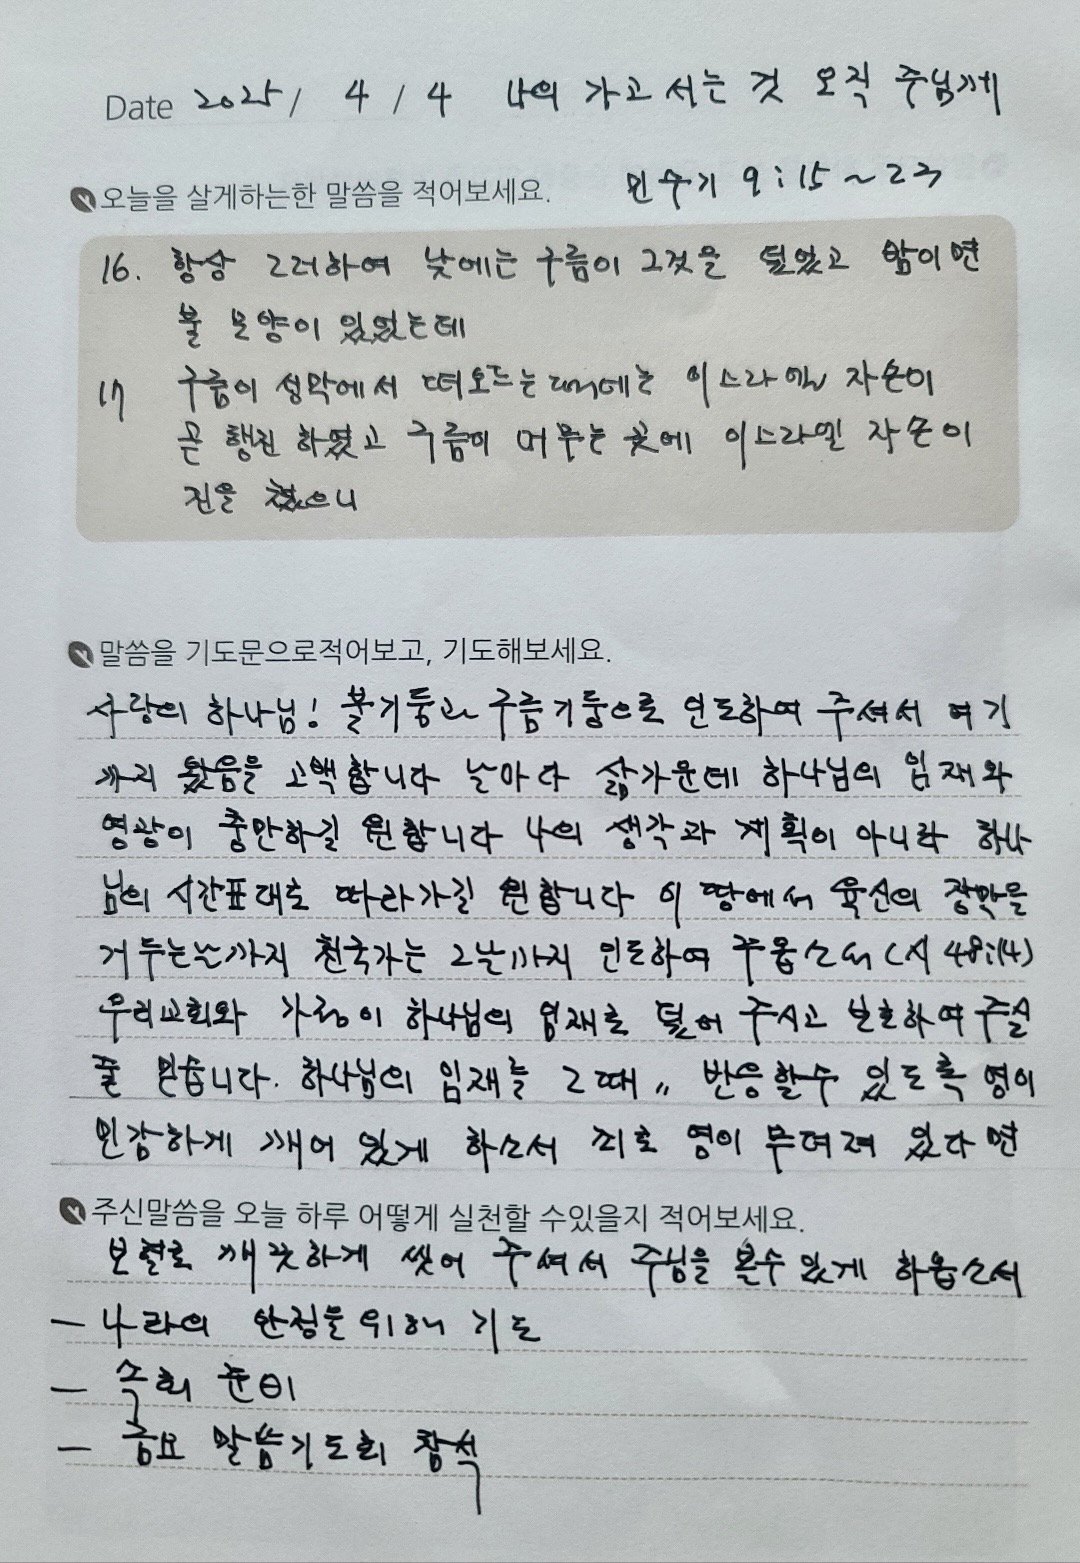 Date 2025 / 4 / 4 나의 가고 서는 것 오직 주님께
오늘을 살게하는한 말씀을 적어보세요. 민수기 9:15~23
16. 항상 그러하여 낮에는 구름이 그것을 덮었고 밤이면
불 모양이 있었는데
17 구름이 성막에서 떠오르는때에는 이스라엘 자손이
곧 행진 하였고 구름이 머무는 곳에 이스라엘 자손이
진을 쳤으니
말씀을 기도문으로적어보고, 기도해보세요.
사랑의 하나님! 불기둥과 구름기둥으로 인도하여 주셔서 여기
까지 왔음을 고백합니다 날마다 삶가운데 하나님의 임재와
영광이 충만하길 원합니다 나의 생각과 계획이 아니라 하나
님의 시간표대로 따라가길 원합니다 이 땅에서 육신의 장막을
거두는 까지 천국가는 그날까지 인도하여 주옵소서 (시 48:14)
우리교회와 가정이 하나님의 임재로 덮어 주시고 보호하여 주실
줄 믿습니다. 하나님의 임재를 그때 〃 반응할수 있도록 영이
민감하게 깨어 있게 하소서 죄로 영이 무뎌져 있다면
주신말씀을 오늘 하루 어떻게 실천할 수있을지 적어보세요.
보혈로 깨끗하게 씻어 주셔서 주님을 볼수 있게 하옵소서
— 나라의 안정을 위해 기도
— 속회 준비
— 금요 말씀기도회 참석